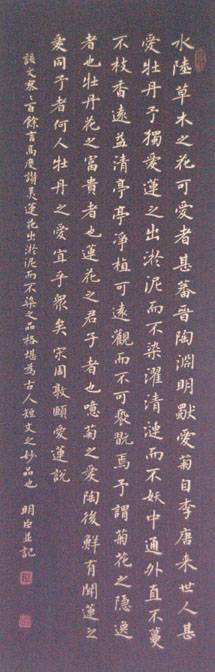 水陸草木之花可愛者甚蕃晋陶淵明獨愛菊自李唐来世人甚
愛牡丹予獨愛蓮之出淤泥而不染濯清漣而不妖中通外直不蔓
不枝香遠益清亭亭淨植可遠觀而不可褻翫焉予謂菊花之隱逸
者也牡丹花之富貴者也蓮花之君子者也噫菊之愛陶後鮮有聞蓮之
愛同予者何人牡丹之愛宜乎眾矣 宋周敦頤愛蓮說
該文寥々百餘言高度讃美蓮花出淤泥而不染之品格堪為古人短文之妙品也 明臣並記